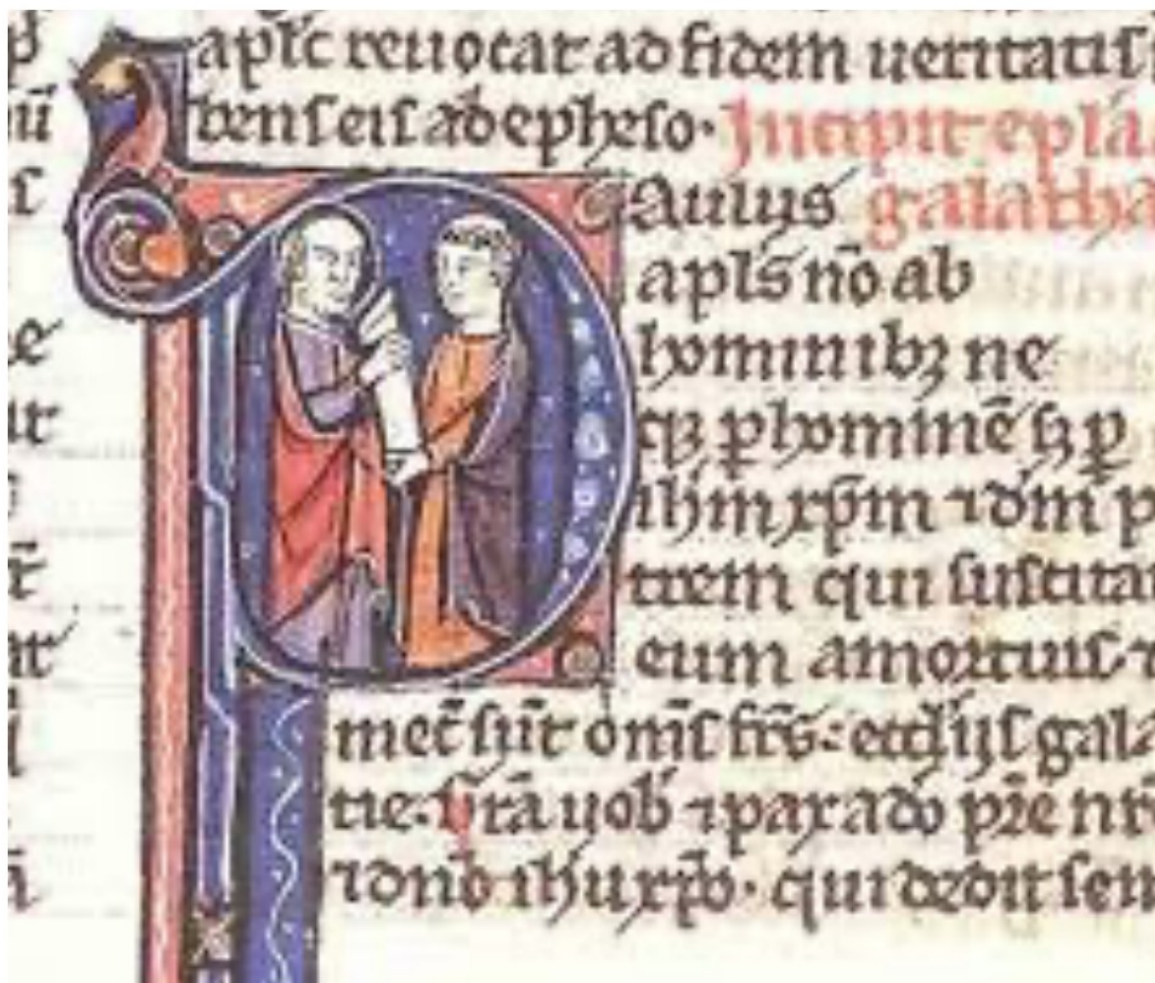 apl̅c reuocat ad fidem ueritatis
bens eis ab epheso. Incipit epl̅a
Paulus galatha
apl̅s no̅ ab
hominibꝫ ne
qꝫ ꝑ homine̅ sꝫ ꝑ
ihm̅ xpm̅ ⁊ dm̅ p
trem qui suscita
eum a mortuis ⁊
mec̅ su̅t om̅s fr̅s: eccl̅ijs gala
tie. Gr̅a uob̅ ⁊ pax a do̅ pr̅e nr̅o
⁊ dn̅o ihu xpo̅. qui dedit sem